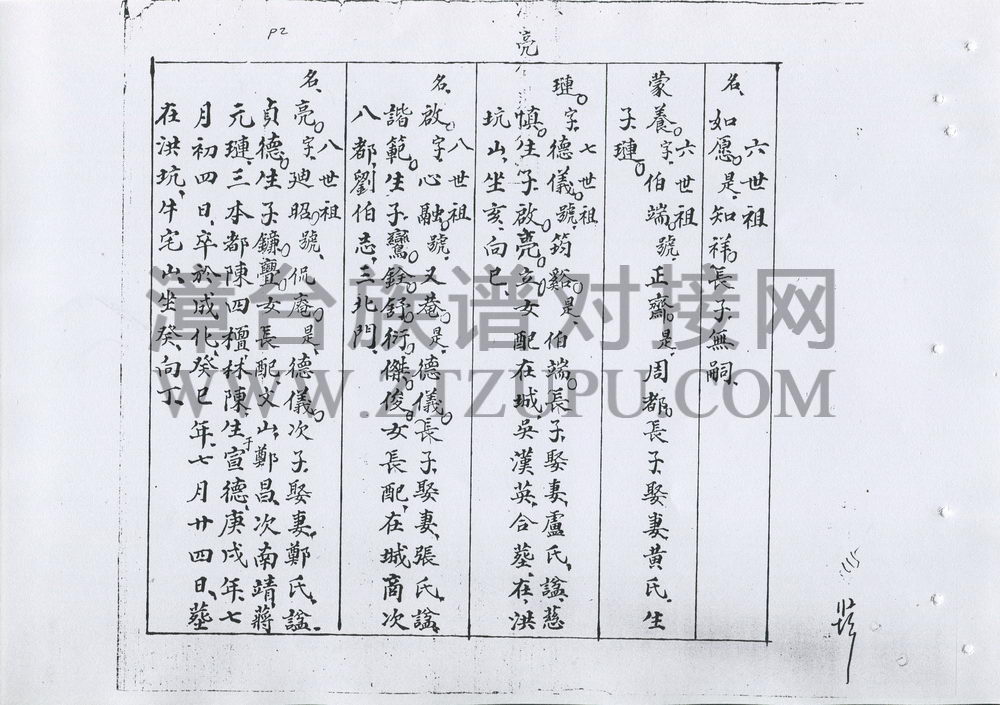 P2
亮
六世祖
名、如愿、是、知祥長子、無嗣、
六世祖
蒙養、字、伯端、號、正齋、是、周都長子、娶妻黃氏、生
子、璉
七世祖
璉、字、德儀、號、筠谿、是、伯端長子、娶妻、盧氏、諡、慈
慎、生子、啟、亮、立女配在城、吳漢英、合葬、在、洪
坑山、坐亥、向巳、
八世祖
名、啟、字、心融、號、又菴、是、德儀長子、娶妻、張氏、諡、
諧範、生子、鸞、銓、舒、衍、傑、俊、女長配、在城商次
八都、劉伯志、三北門、
八世祖
名、亮、字、廸昭、號、侃庵、是、德儀次子、娶妻、鄭氏、諡、
貞德、生子、鐮、亹、女長配文山、鄭昌、次南靖、蔣
元璉、三本都陳四檀林陳、生于宣德、庚戌年、七
月初四日、卒於成化、癸巳年、七月廿四日、葬
在洪坑、牛宅山、坐癸、向丁、
漳台族谱对接网
WWW.ZTZUPU.COM